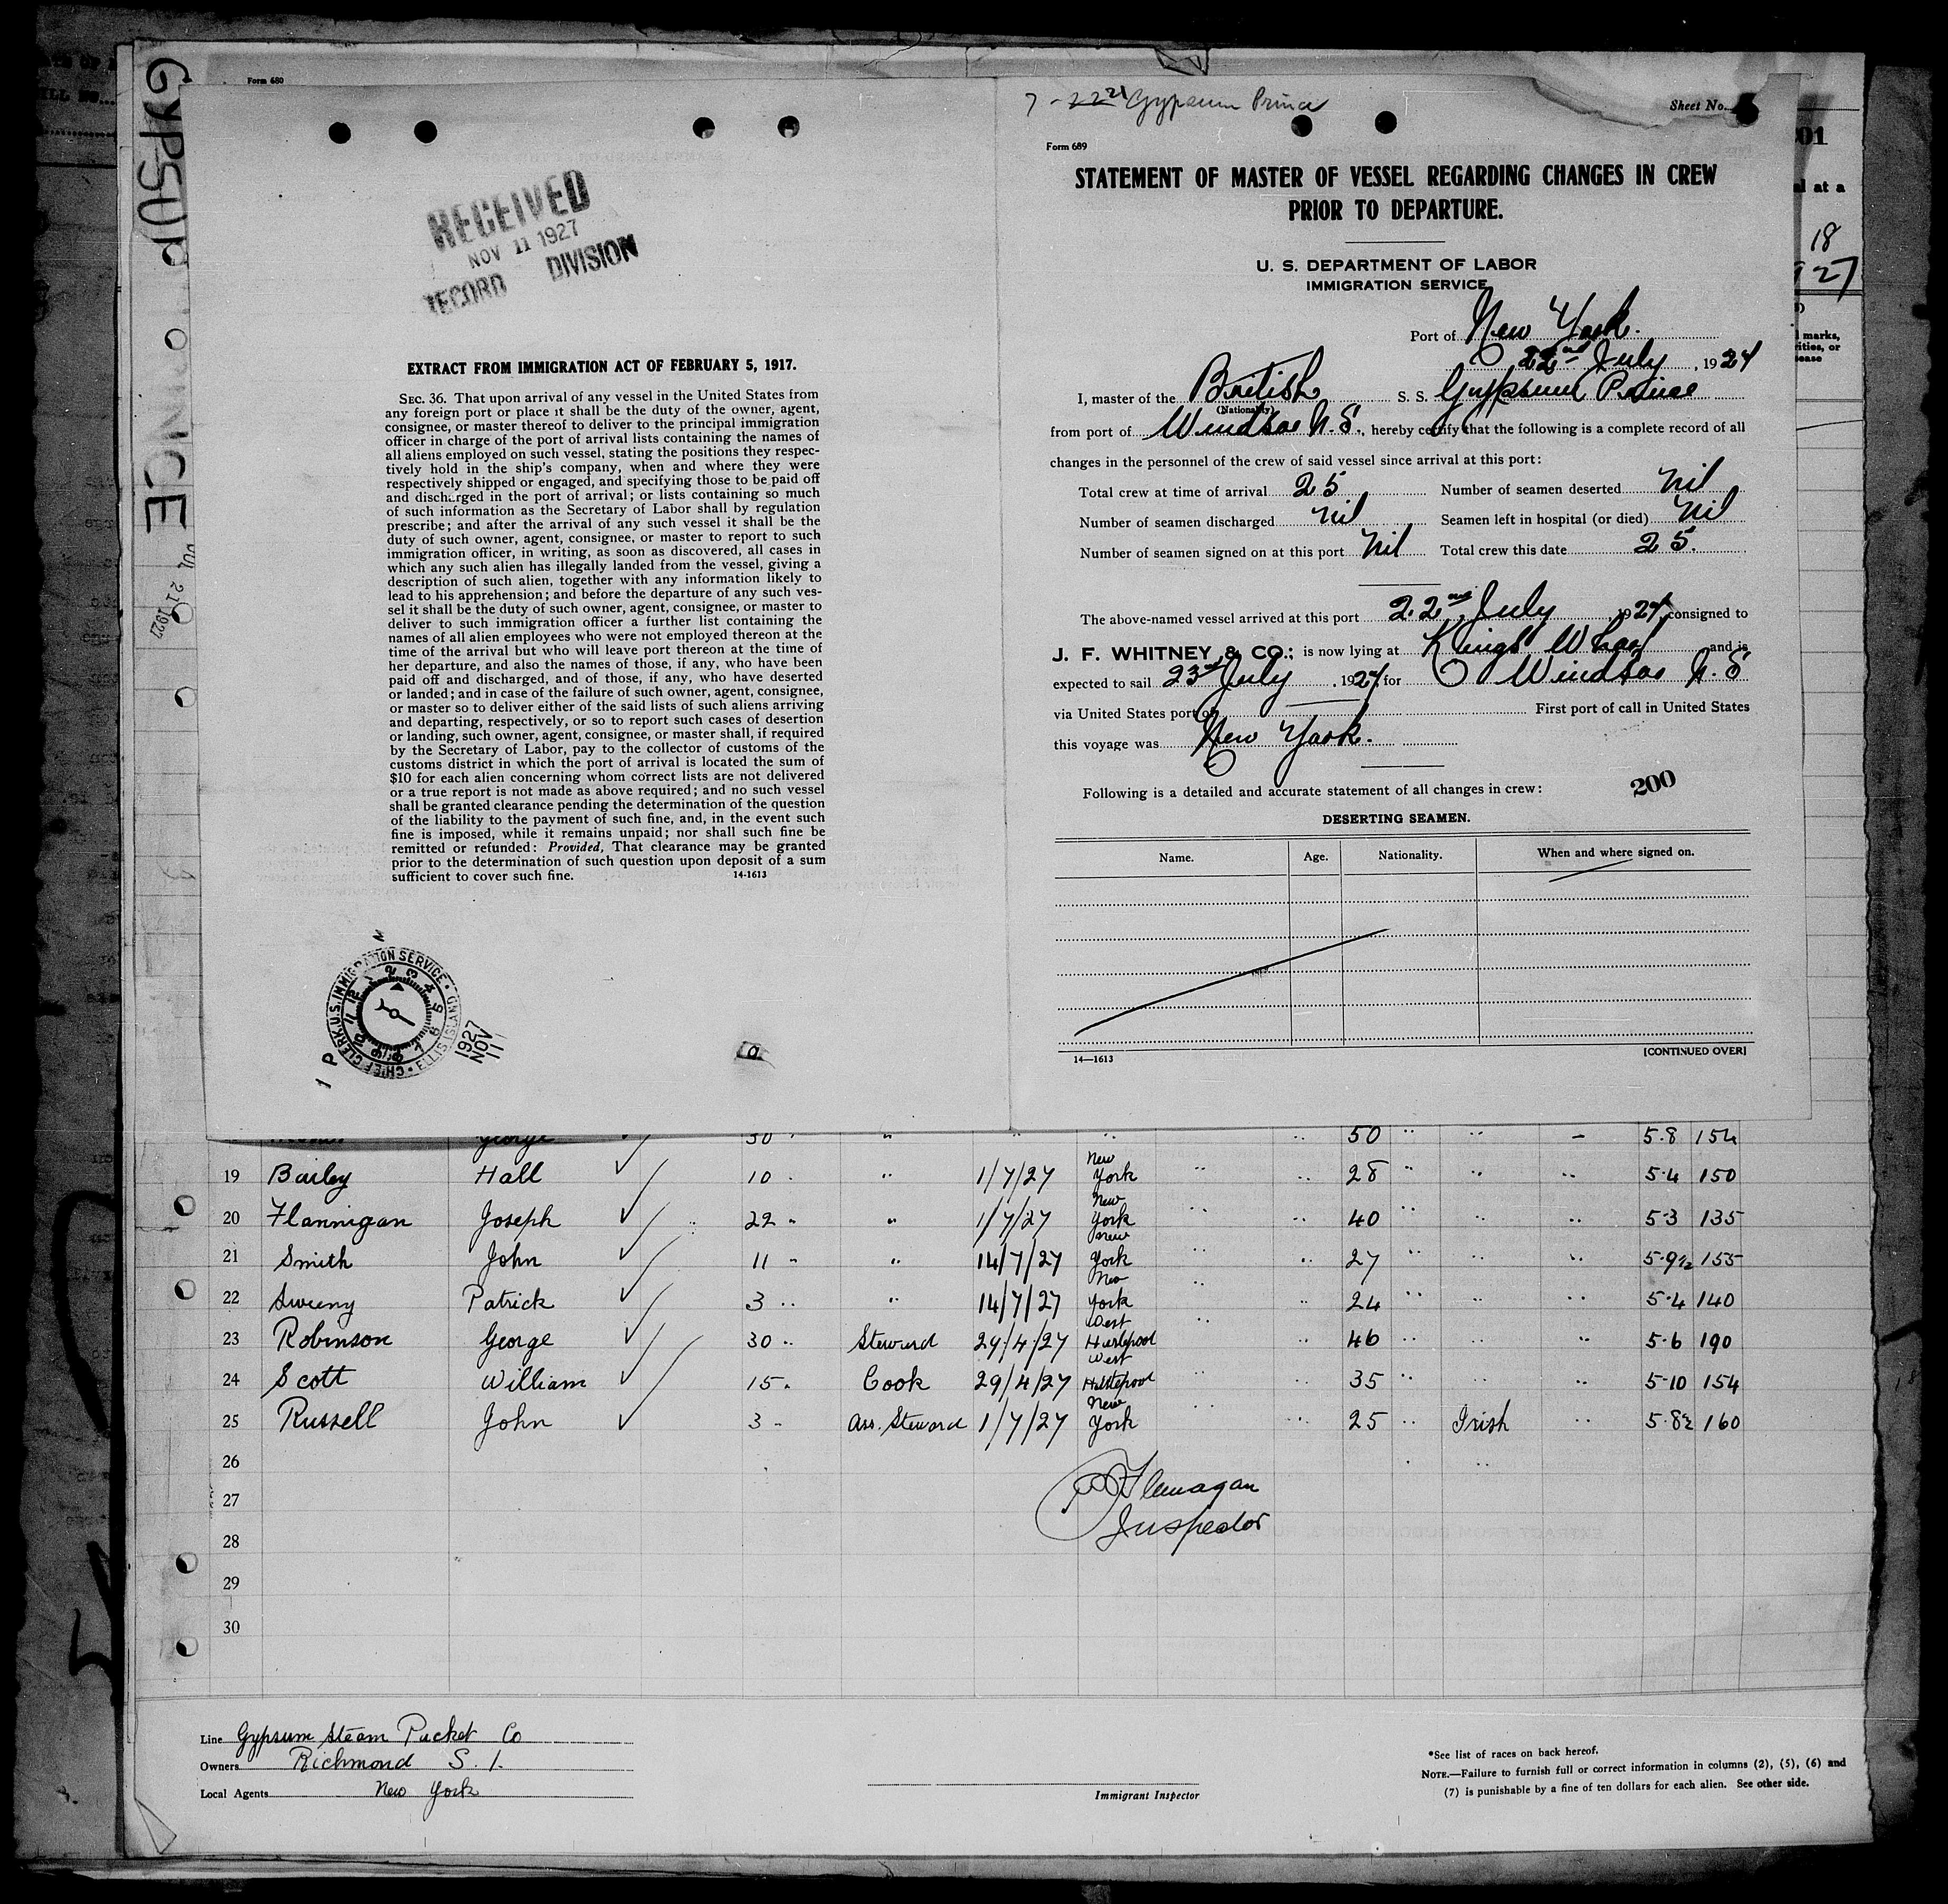 GYPSUM PRINCE
JUL 21 1927
Form 680
RECEIVED
NOV 11 1927
RECORD DIVISION
EXTRACT FROM IMMIGRATION ACT OF FEBRUARY 5, 1917.
SEC. 36. That upon arrival of any vessel in the United States from
any foreign port or place it shall be the duty of the owner, agent,
consignee, or master thereof to deliver to the principal immigration
officer in charge of the port of arrival lists containing the names of
all aliens employed on such vessel, stating the positions they respec-
tively hold in the ship's company, when and where they were
respectively shipped or engaged, and specifying those to be paid off
and discharged in the port of arrival; or lists containing so much
of such information as the Secretary of Labor shall by regulation
prescribe; and after the arrival of any such vessel it shall be the
duty of such owner, agent, consignee, or master to report to such
immigration officer, in writing, as soon as discovered, all cases in
which any such alien has illegally landed from the vessel, giving a
description of such alien, together with any information likely to
lead to his apprehension; and before the departure of any such ves-
sel it shall be the duty of such owner, agent, consignee, or master to
deliver to such immigration officer a further list containing the
names of all alien employees who were not employed thereon at the
time of the arrival but who will leave port thereon at the time of
her departure, and also the names of those, if any, who have been
paid off and discharged, and of those, if any, who have deserted
or landed; and in case of the failure of such owner, agent, consignee,
or master so to deliver either of the said lists of such aliens arriving
and departing, respectively, or so to report such cases of desertion
or landing, such owner, agent, consignee, or master shall, if required
by the Secretary of Labor, pay to the collector of customs of the
customs district in which the port of arrival is located the sum of
$10 for each alien concerning whom correct lists are not delivered
or a true report is not made as above required; and no such vessel
shall be granted clearance pending the determination of the question
of the liability to the payment of such fine, and, in the event such
fine is imposed, while it remains unpaid; nor shall such fine be
remitted or refunded: Provided, That clearance may be granted
prior to the determination of such question upon deposit of a sum
sufficient to cover such fine.
14-1613
CHIEF CLERK U.S. IMMIGRATION SERVICE · ELLIS ISLAND
1927 NOV 11
1 P
7-22 21 Gypsum Prince
Sheet No.
Form 689
STATEMENT OF MASTER OF VESSEL REGARDING CHANGES IN CREW
PRIOR TO DEPARTURE.
U. S. DEPARTMENT OF LABOR
IMMIGRATION SERVICE
Port of New York.
22nd July, 1927
I, master of the British S. S. Gypsum Prince
(Nationality)
from port of Windsor N.S., hereby certify that the following is a complete record of all
changes in the personnel of the crew of said vessel since arrival at this port:
Total crew at time of arrival 25 Number of seamen deserted nil
Number of seamen discharged nil Seamen left in hospital (or died) nil
Number of seamen signed on at this port nil Total crew this date 25.
The above-named vessel arrived at this port 22nd July 1927, consigned to
J. F. WHITNEY & CO.; is now lying at Kings Wharf and is
expected to sail 23rd July, 1927, for Windsor N.S
via United States port of First port of call in United States
this voyage was New York.
Following is a detailed and accurate statement of all changes in crew:
200
DESERTING SEAMEN.
Name. Age. Nationality. When and where signed on.
14—1613
[CONTINUED OVER]
George 30 " " " " 50 " " - 5.8 154
19 Bailey Hall 10 " 1/7/27 New York " " 28 " " " 5.4 150
20 Flannigan Joseph 22 " " 1/7/27 New York " " 40 " " " 5.3 135
21 Smith John 11 " " 14/7/27 New York " " 27 " " " 5.9½ 155
22 Sweeny Patrick 3 " " 14/7/27 New York " " 24 " " " 5.4 140
23 Robinson George 30 " Steward 29/4/27 West Hartlepool " " 46 " " " 5.6 190
24 Scott William 15 " Cook 29/4/27 West Hartlepool " " 35 " " " 5.10 154
25 Russell John 3 " Ass. Steward 1/7/27 New York " " 25 " Irish " 5.8½ 160
26
27
28
29
30
Flanagan
Inspector
Line Gypsum Steam Packet Co
Owners Richmond S. I.
Local Agents New York
Immigrant Inspector
*See list of races on back hereof.
NOTE.—Failure to furnish full or correct information in columns (2), (5), (6) and
(7) is punishable by a fine of ten dollars for each alien. See other side.